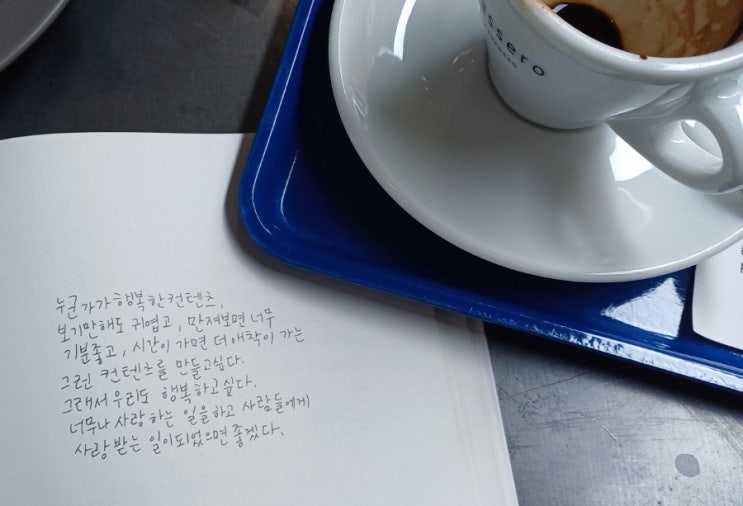 ssero
누군가가 행복한 컨텐츠,
보기만해도 귀엽고, 만져보면 너무
기분좋고, 시간이 가면 더 애착이 가는
그런 컨텐츠를 만들고싶다.
그래서 우리도 행복하고싶다.
너무나 사랑하는 일을하고 사람들에게
사랑받는 일이되었으면 좋겠다.